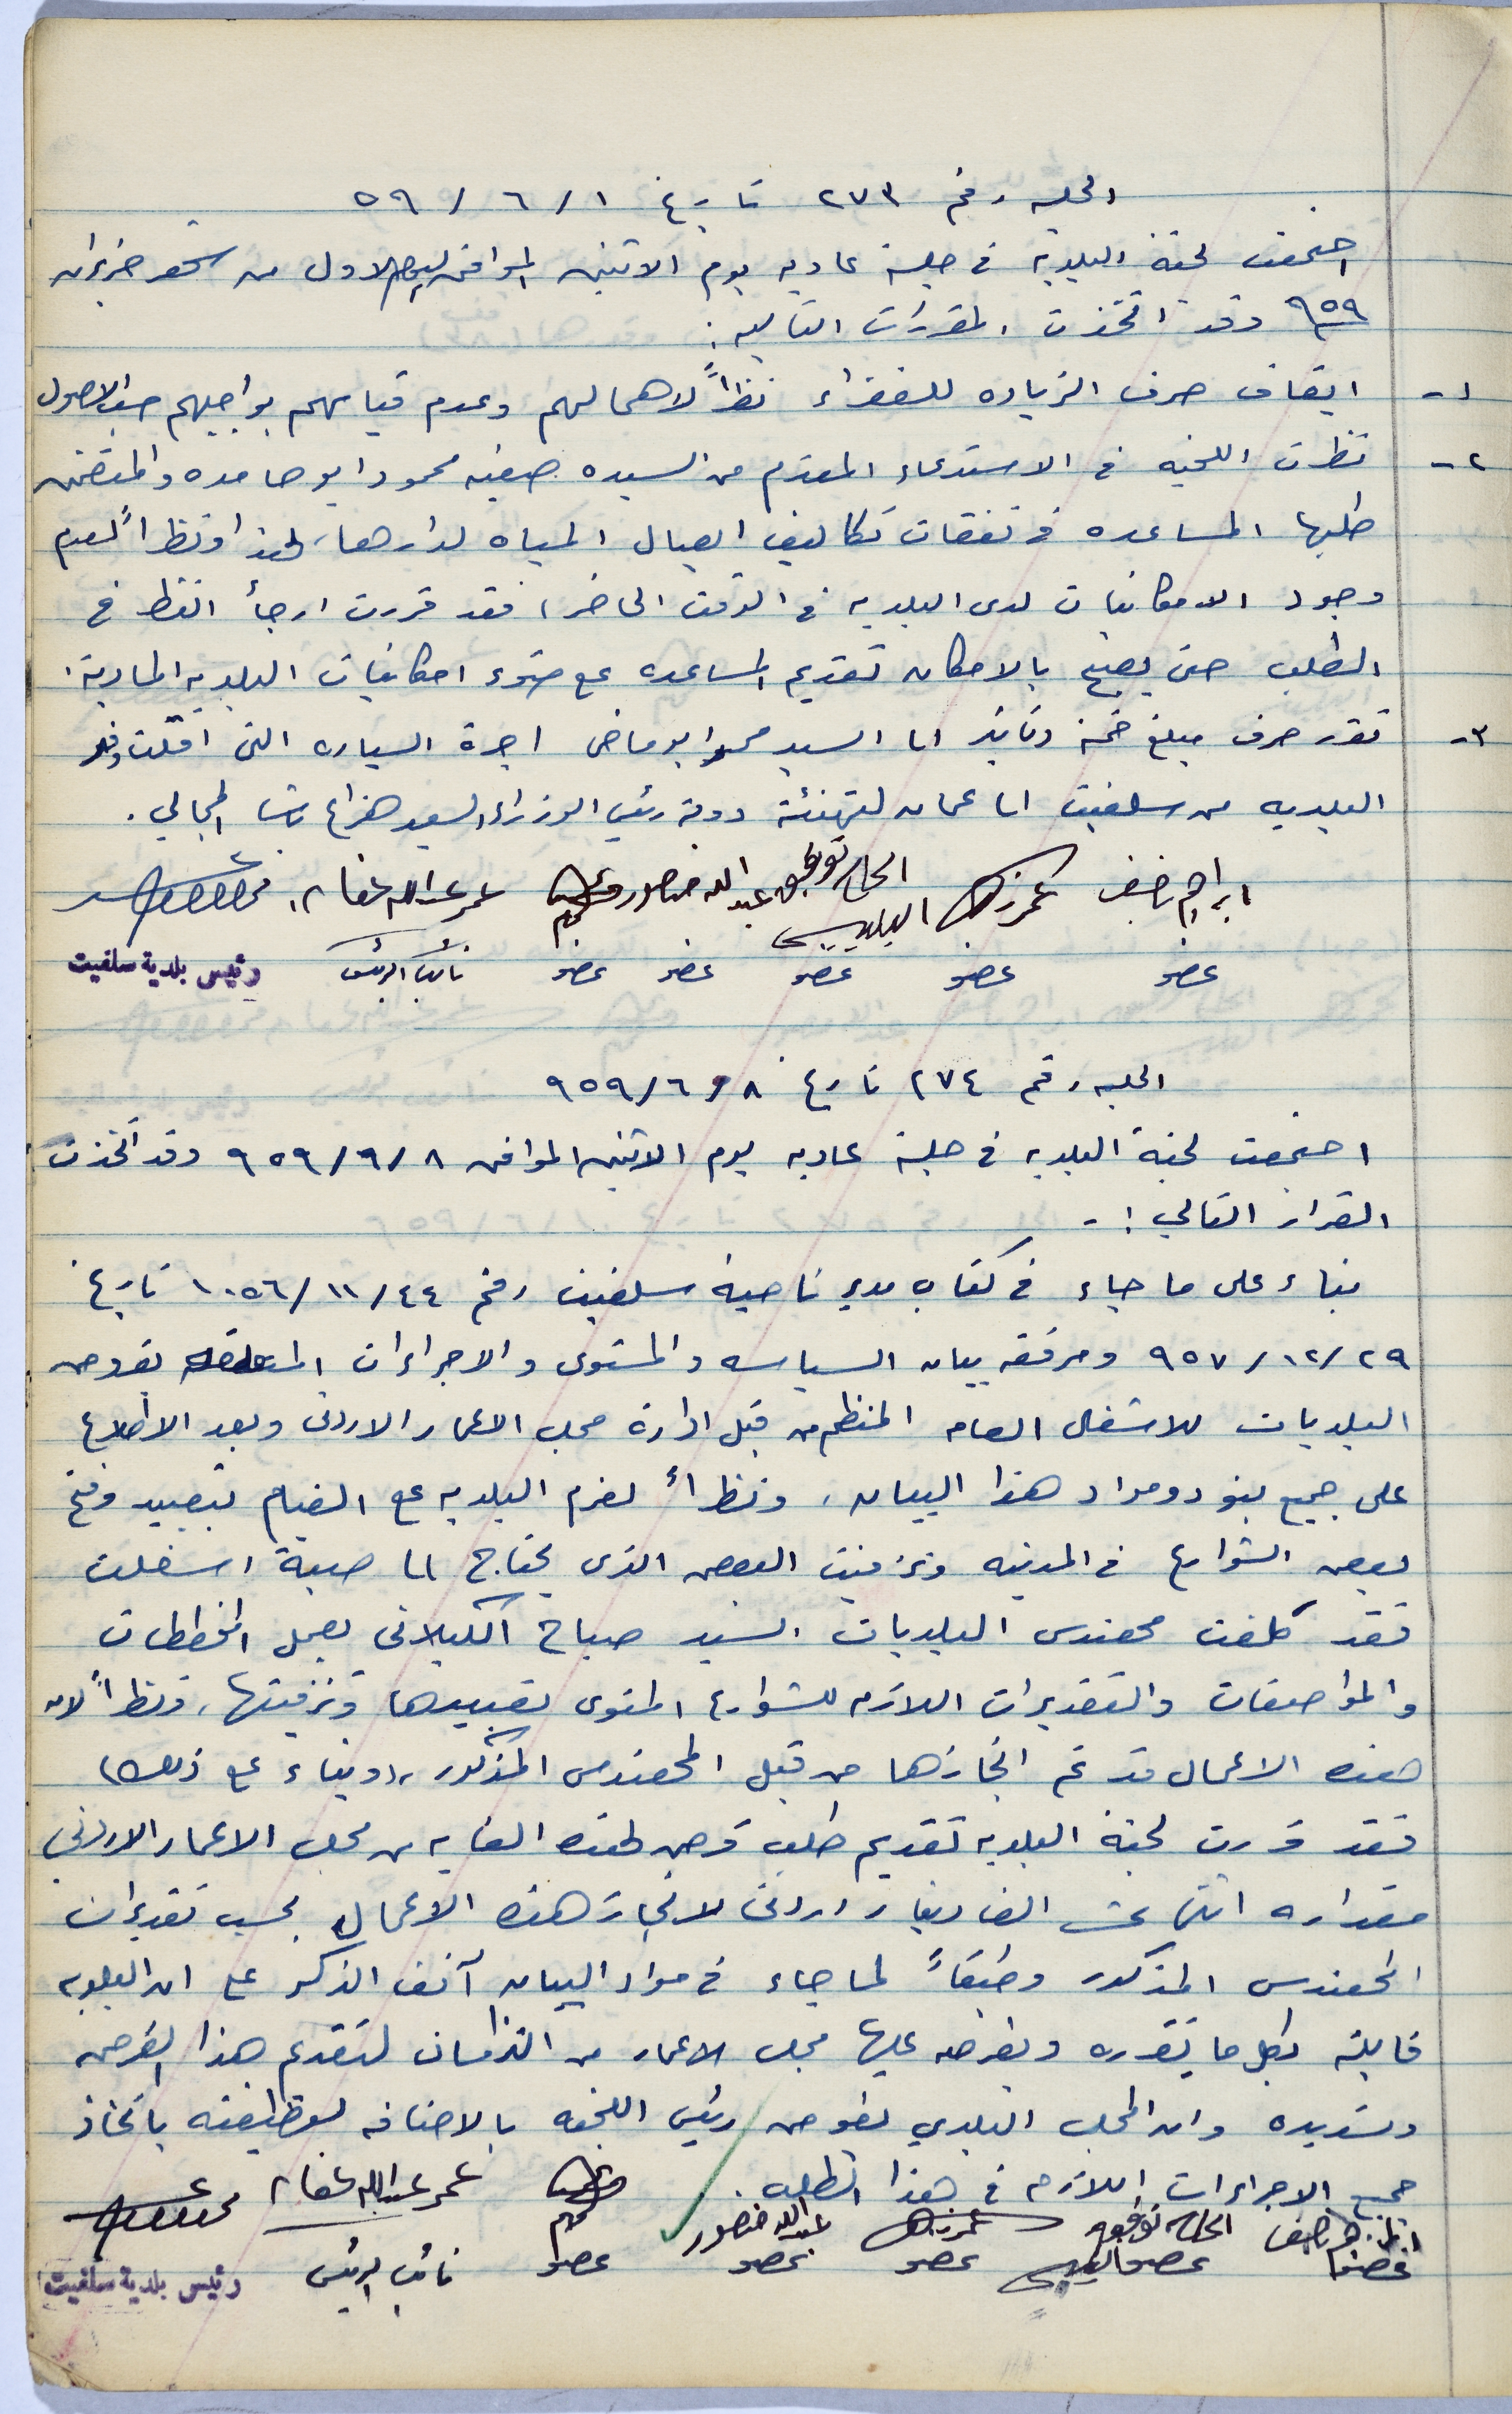 الجلسه رقم ٢٧٣ تاريخ ١ / ٦ / ٥٩
اجتمعت لجنة البلدية في جلسة عاديه يوم الاثنين الموافق اليوم الاول من شهر حزيران
٩٥٩ وقد اتخذت المقررات التاليه :
١- ايقاف صرف الزياده للفقراء نظراً لاهمالهم وعدم قيامهم بواجبهم حسب الاصول
٢- نظرت اللجنه في الاستدعاء المقدم من السيده صفيه محمود ابو حامده والمتضمن
طلبها المساعده في نفقات تكاليف ايصال المياه لدارها، لهذا ونظراً لعدم
وجود الامكانيات لدى البلديه في الوقت الحاضر، فقد قررت ارجأ النظر في
الطلب حتى يصبح بالامكان تقديم المساعده على ضوء امكانيات البلديه المادية.
٣- تقرر صرف مبلغ خمسة دنانير الى السيد محمد ابو ماضي اجرة السياره التي اقلت وفد
البلديه من سلفيت الى عمان لتهنئة دولة رئيس الوزراء السيد هزاع باشا المجالي.
ابراهيم ناصف الحاج توفيق عبد الله منصور عمر عبد الله عفانه
عضو عضو عضو عضو عضو نائب الرئيس رئيس بلدية سلفيت
الجلسه رقم ٢٧٤ تاريخ ٨ / ٦ / ٩٥٩
اجتمعت لجنة البلديه في جلسة عاديه يوم الاثنين الموافق ٨ / ٩ / ٩٥٩ وقد اتخذت
القرار التالي :-
بناء على ما جاء في كتاب مدير ناحية سلفيت رقم ٤٤ / ١١ / ١٠٥٦ تاريخ
٢٩ / ١٢ / ٩٥٧ ومرفقه بيان السياسه والمستوى والاجراءات المتعلقه بقروض
البلديات للاشغال العامه المنظم من قبل ادارة مجلس الاعمار الاردني وبعد الاطلاع
على جميع بنود ومواد هذا البيان، ونظراً لعزم البلديه على القيام بتعبيد وفتح
بعض الشوارع في المدينه وتزفيت البعض الذي يحتاج الى صبة اسفلت
فقد كلفت مهندس البلديات السيد صباح الكيلاني بعمل المخططات
والمواصفات والتقديرات اللازمه للشوارع المنوى تعبيدها وتزفيتها، ونظراً لان
هذه الاعمال قد تم انجازها من قبل المهندس المذكور، (وبناء على ذلك)
فقد قررت لجنة البلديه تقديم طلب قرض لهذه الغايه من مجلس الاعمار الاردني
مقداره اثنى عشر الف دينار اردني لانجاز هذه الاعمال بحسب تقديرات
المهندس المذكور وطبقاً لما جاء في مواد البيان آنف الذكر على ان البلديه
قابله بكل ما يقرره ويفرضه عليها مجلس الاعمار من التزامات لتقديم هذا القرض
وتسديده وان المجلس البلدي يفوض رئيس اللجنه بالاضافه لوظيفته باتخاذ
جميع الاجراءات اللازمه في هذا الطلب.
ابراهيم ناصف الحاج توفيق عبد الله منصور عمر عبد الله عفانه
عضو عضو عضو عضو عضو نائب الرئيس رئيس بلدية سلفيت